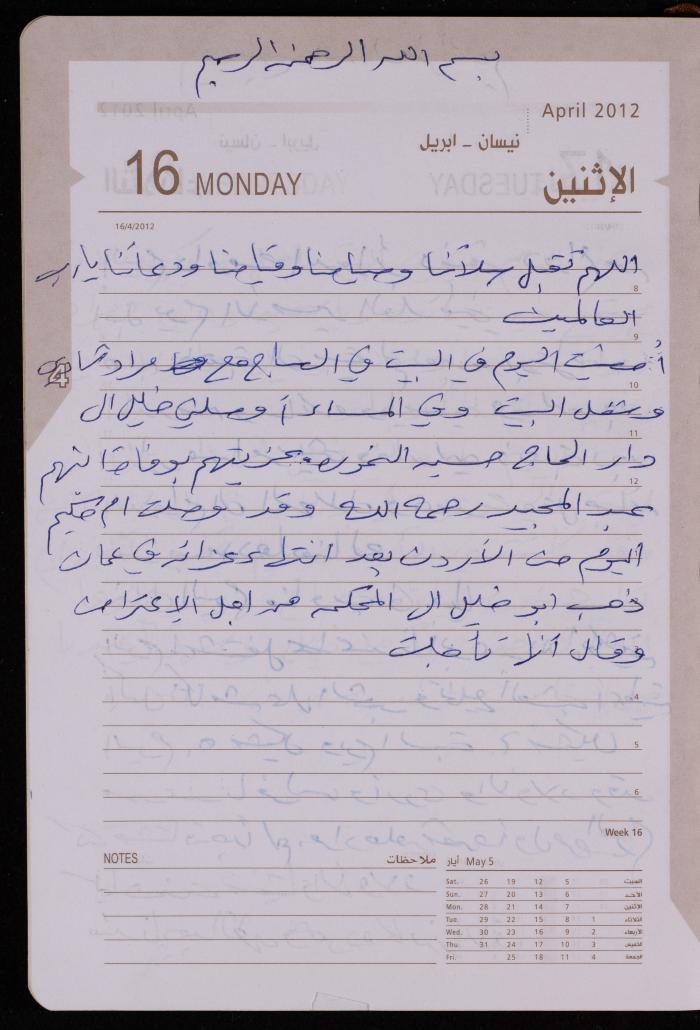 بسم الله الرحمن الرحيم
April 2012
نيسان - ابريل
16 MONDAY
الإثنين
16/4/2012
اللهم تقبل صلاتنا وصيامنا وقيامنا ودعائنا يا رب
8
العالمين
9
أمضيت اليوم في البيت وفي المساج مع
10
4
وشغل البيت وفي المساء أوصلني خليل ال
11
دار الحاج حسين بوفاة ابنهم
12
عبد المجيد رحمه الله وقد وصلت ام
اليوم من الأردن بعد انتهاء عزائه في عمان
ذهب ابو خليل الى المحكمة من اجل الإعتراض
وقال أنها تأجلت
4
5
6
Week 16
NOTES
ملاحظات
أيار May 5
Sat. 26 19 12 5 السبت
Sun. 27 20 13 6 الأحد
Mon. 28 21 14 7 الاثنين
Tue. 29 22 15 8 1 الثلاثاء
Wed. 30 23 16 9 2 الأربعاء
Thu. 31 24 17 10 3 الخميس
Fri. 25 18 11 4 الجمعة